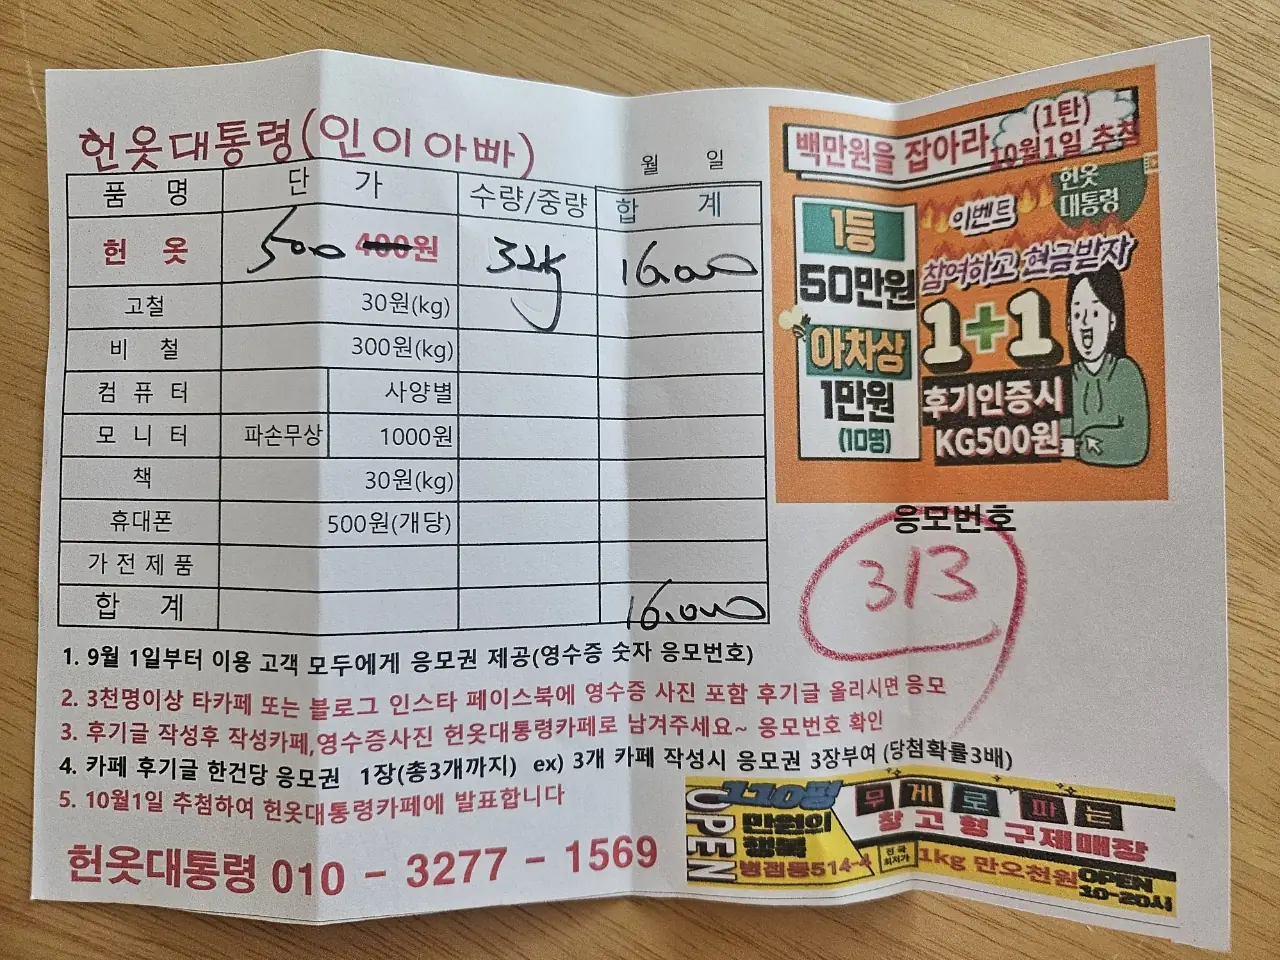 헌옷대통령(인이아빠)
월 일
품 명 단 가 수량/중량 합 계
헌 옷 500 400원 32kg 16.000
고철 30원(kg)
비 철 300원(kg)
컴 퓨 터 사양별
모 니 터 파손무상 1000원
책 30원(kg)
휴대폰 500원(개당)
가 전 제 품
합 계 16.000
1. 9월 1일부터 이용 고객 모두에게 응모권 제공(영수증 숫자 응모번호)
2. 3천명이상 타카페 또는 블로그 인스타 페이스북에 영수증 사진 포함 후기글 올리시면 응모
3. 후기글 작성후 작성카페,영수증사진 헌옷대통령카페로 남겨주세요~ 응모번호 확인
4. 카페 후기글 한건당 응모권 1장(총3개까지) ex) 3개 카페 작성시 응모권 3장부여 (당첨확률3배)
5. 10월1일 추첨하여 헌옷대통령카페에 발표합니다
헌옷대통령 010 - 3277 - 1569
백만원을 잡아라 (1탄)
10월1일 추첨
헌옷
대통령
이벤트
참여하고 현금받자
1등
50만원
아차상
1만원
(10명)
1+1
후기인증시
KG500원
응모번호
313
OPEN
110평
만원의
행복
병점동514-4
무게로파는
창고형 구제매장
전국
최저가
1kg 만오천원
OPEN
10-20시